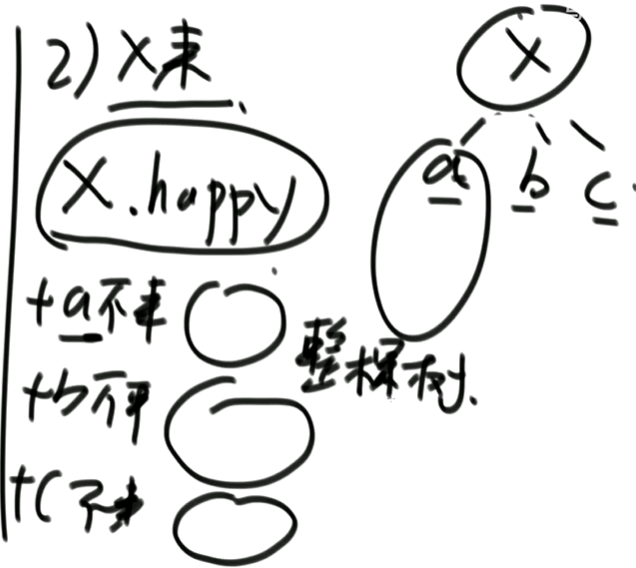 2) X来
X.happy
+a不来
+b不来
+c不来
X
a b c
整棵树.